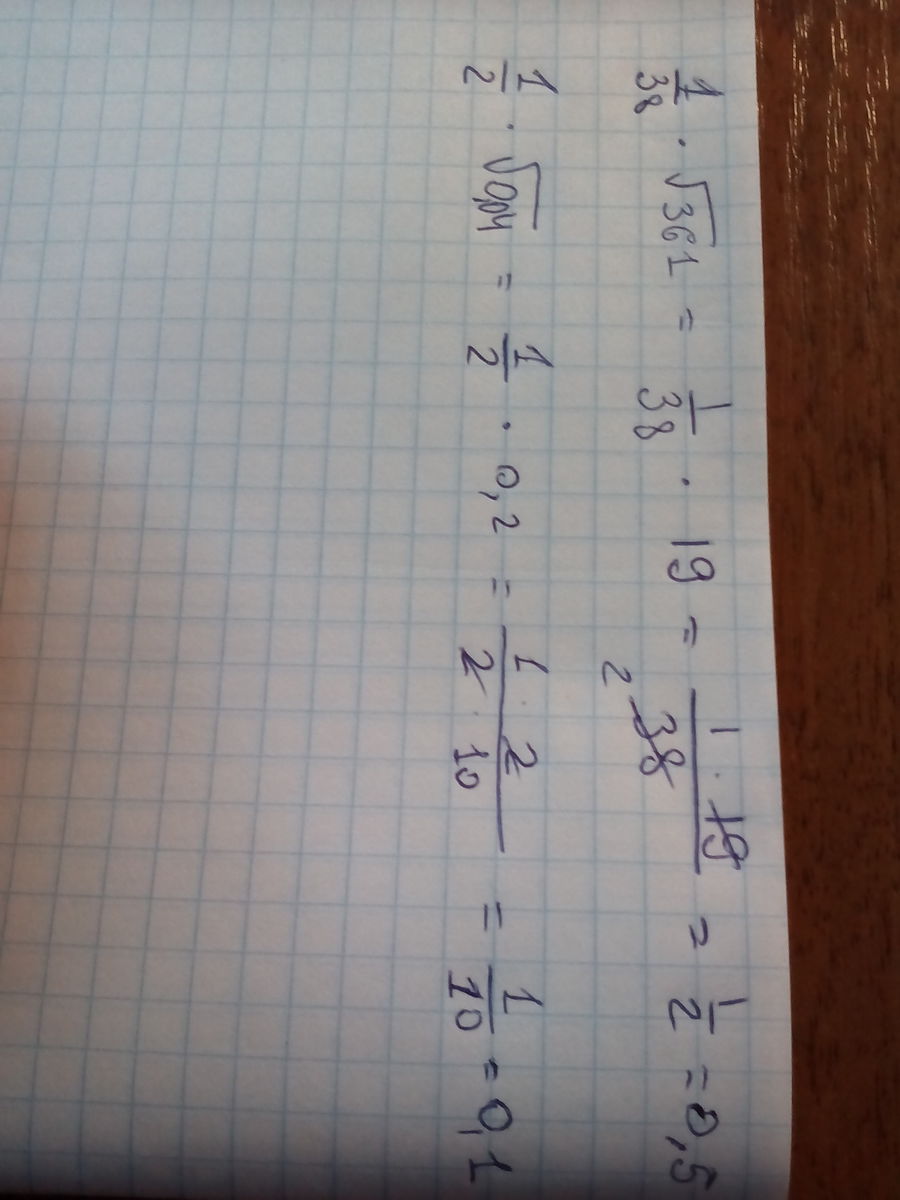 1/38 · √361 = 1/38 · 19 = 1 · 19/38 2 = 1/2 = 0,5
1/2 · √0,04 = 1/2 · 0,2 = 1 · 2/2 · 10 = 1/10 = 0,1